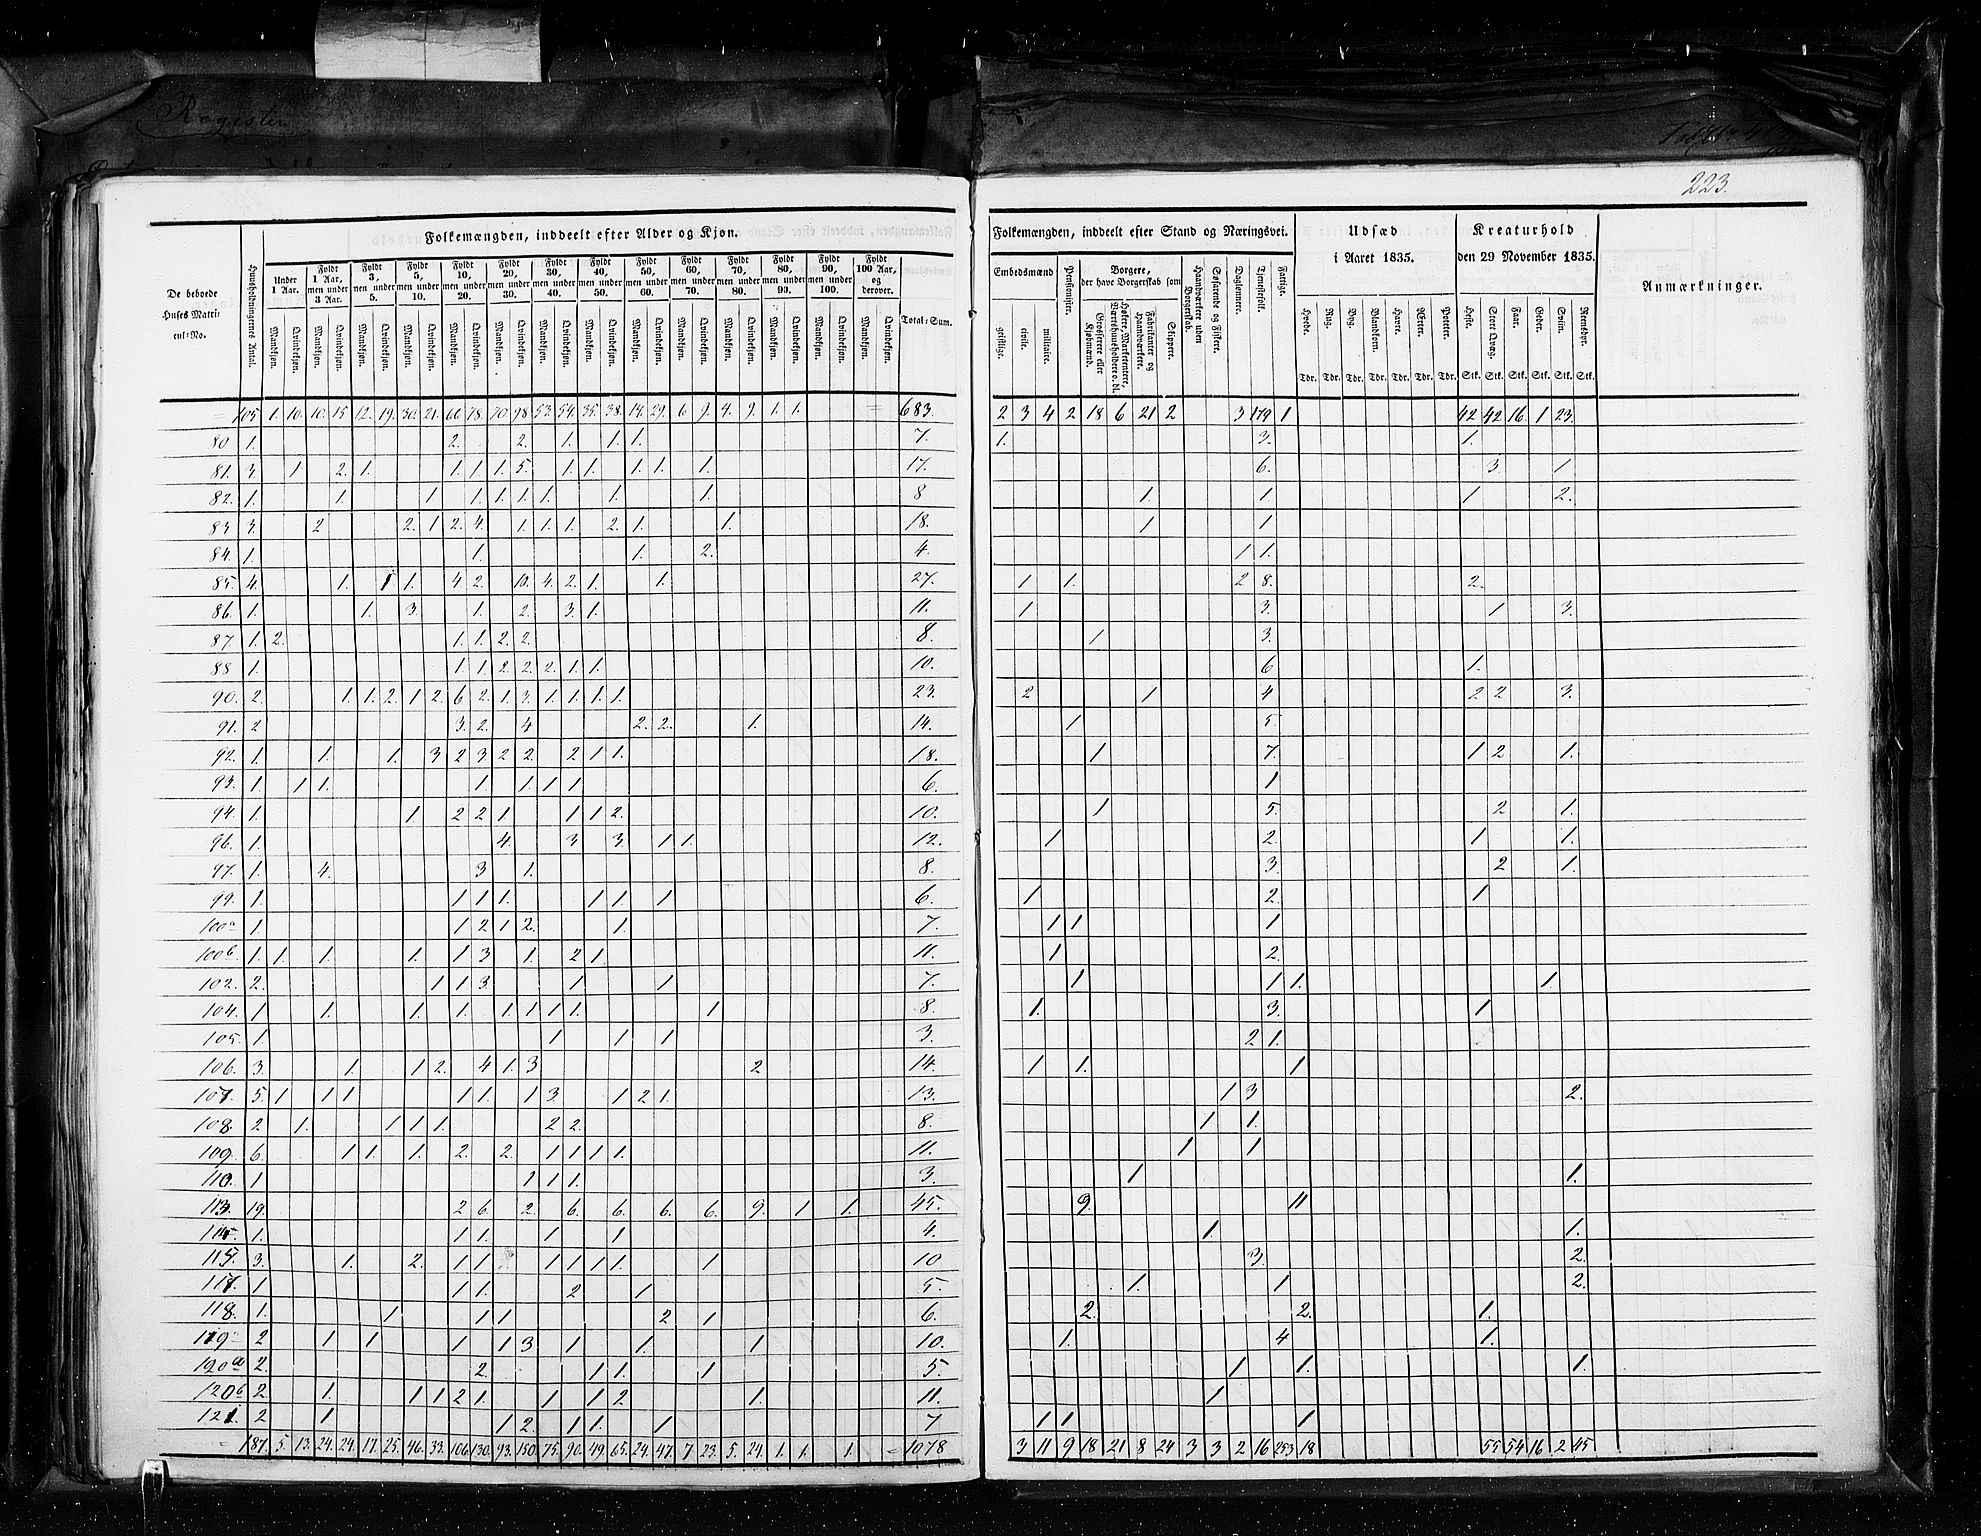 Register
223.
Folkemængden, inddeelt efter Alder og Kjøn.
De beboede Huses Matricul-No.
Huusholdningernes Antal.
Under 1 Aar.
Fyldt 1 Aar, men under 3 Aar.
Fyldt 3, men under 5.
Fyldt 5, men under 10.
Fyldt 10, men under 20.
Fyldt 20, men under 30.
Fyldt 30, men under 40.
Fyldt 40, men under 50.
Fyldt 50, men under 60.
Fyldt 60, men under 70.
Fyldt 70, men under 80.
Fyldt 80, men under 90.
Fyldt 90, men under 100.
Fyldt 100 Aar, og derover.
Total-Sum.
Mandkjøn. Qvindekjøn. Mandkjøn. Qvindekjøn. Mandkjøn. Qvindekjøn. Mandkjøn. Qvindekjøn. Mandkjøn. Qvindekjøn. Mandkjøn. Qvindekjøn. Mandkjøn. Qvindekjøn. Mandkjøn. Qvindekjøn. Mandkjøn. Qvindekjøn. Mandkjøn. Qvindekjøn. Mandkjøn. Qvindekjøn. Mandkjøn. Qvindekjøn. Mandkjøn. Qvindekjøn. Mandkjøn. Qvindekjøn.
105 1. 10. 10. 15 12. 19. 30. 21. 66 78. 70 98. 53. 54. 35. 38. 14. 29. 6 9. 4. 9. 1. 1. 683.
80 1. 2. 2. 1. 1. 1. 7.
81. 3. 1 2. 1. 1 1 1. 5. 1 1. 1. 1. 1. 17.
82. 1. 1. 1 1. 1. 1. 1. 1. 1. 8
83 3. 2 2. 1 2. 4. 1. 1. 1. 2. 1. 1. 18.
84. 1. 1. 1. 2. 4.
85. 4. 1. 1 1. 4 2. 10. 4. 2. 1. 1. 27.
86. 1. 1. 3. 1. 2. 3. 1. 11.
87. 1. 2. 1 1. 2. 2. 8.
88 1. 1 1 2. 2. 2. 1. 1. 10.
90. 2. 1. 1. 2. 1 2. 6 2. 1. 3. 1. 1. 1. 1. 23.
91. 2 3. 2. 4 2. 2. 1. 14.
92. 1. 1. 1. 3 2 3 2 2. 2 1 1. 18.
93. 1. 1 1. 1 1. 1 1 6.
94. 1. 1 2 2 1. 1 1 2. 10.
96. 1. 4. 3 3. 1 1. 12.
97. 1. 4. 3 1. 8.
99. 1. 1 1 1. 1 1. 1 6.
100a 1. 1 2 1 2. 1. 7.
100b 1. 1. 1. 1. 1 3 1. 2 1. 11.
102. 2. 1 1 3. 1 1 7.
104. 1 1. 1. 1. 1 1 1 1. 1 8.
105. 1. 1 1 1 3.
106. 3. 1. 1 2. 4 1. 3 2 14.
107. 5. 1 1 1 1 1. 1 3. 1 2 1. 13.
108. 2 1. 1 1 1. 2 2. 8.
109. 6. 1 1. 1. 2. 2. 1 1 1 1. 11.
110. 1 1 1 1. 3.
113. 19. 2 6. 2. 6. 6. 6. 6. 9. 1 1. 45.
1. 1 1. 1 1 4.
115. 3. 1. 2. 1 1 1 1 1 1. 1 10
117. 1 1 1. 2 1 5.
118. 1. 1 1 1 2 1 6.
119a 2 1 1 1 1 3 1 1. 1 10.
2. 2. 1 1. 1 5.
120b 2. 1. 1 1 2 1. 1 1 2 1. 11.
121. 2 1 1 2. 1 1. 1 7
187. 5. 13. 24. 24. 17. 25. 46. 33. 106. 130. 93. 150. 75. 90. 49. 65. 24. 47. 7 23. 5 24. 1. 1. 1. 1078
Folkemængden, inddeelt efter Stand og Næringsvei.
Udsæd i Aaret 1835.
Kreaturhold den 29 November 1835.
Anmærkninger.
Embedsmænd
geistlige. civile. militaire.
Pensionister.
Borgere, der have Borgerskab som
Grosserere eller Kjøbmænd.
Høkere, Marketentere, Værtshuusholdere o. dl.
Fabrikanter og Haandværkere.
Skippere.
Haandværkere uden Borgerskab.
Søfarende og Fiskere.
Daglønnere.
Tjenestefolk.
Fattige.
Hvede. Rug. Byg. Blandkorn. Havre. Ærter. Poteter.
Tdr. Tdr. Tdr. Tdr. Tdr. Tdr. Tdr.
Heste. Stort Qvæg. Faar. Geder. Sviin. Rensdyr.
Stk. Stk. Stk. Stk. Stk. Stk.
2 3 4 2 18 6 21 2 3 179 1 42 42 16. 1 23.
1. 3. 1.
6. 3. 1
1. 1 1 2.
1 1
1 1.
1 1. 2 8. 2.
1 3. 1 3.
1 3.
6 1.
2 1 4 2 2 3.
1 5.
1 7. 1 2 1.
1
1 5. 2 1.
1 2. 1 1.
3. 2 1.
1 2. 1
1 1 1
1 2.
1 1 1. 1
1. 3. 1
2 1.
1 1. 1
1 3 2.
1 1.
1 1
1 1.
9. 11
1 1.
3. 2.
1. 1 2.
2. 2. 1.
1. 4 1.
1 1. 1.
1
1 1 1
3 11 9 18 21 8 24 3 3 2 16 253 18 55 54 16 2 45